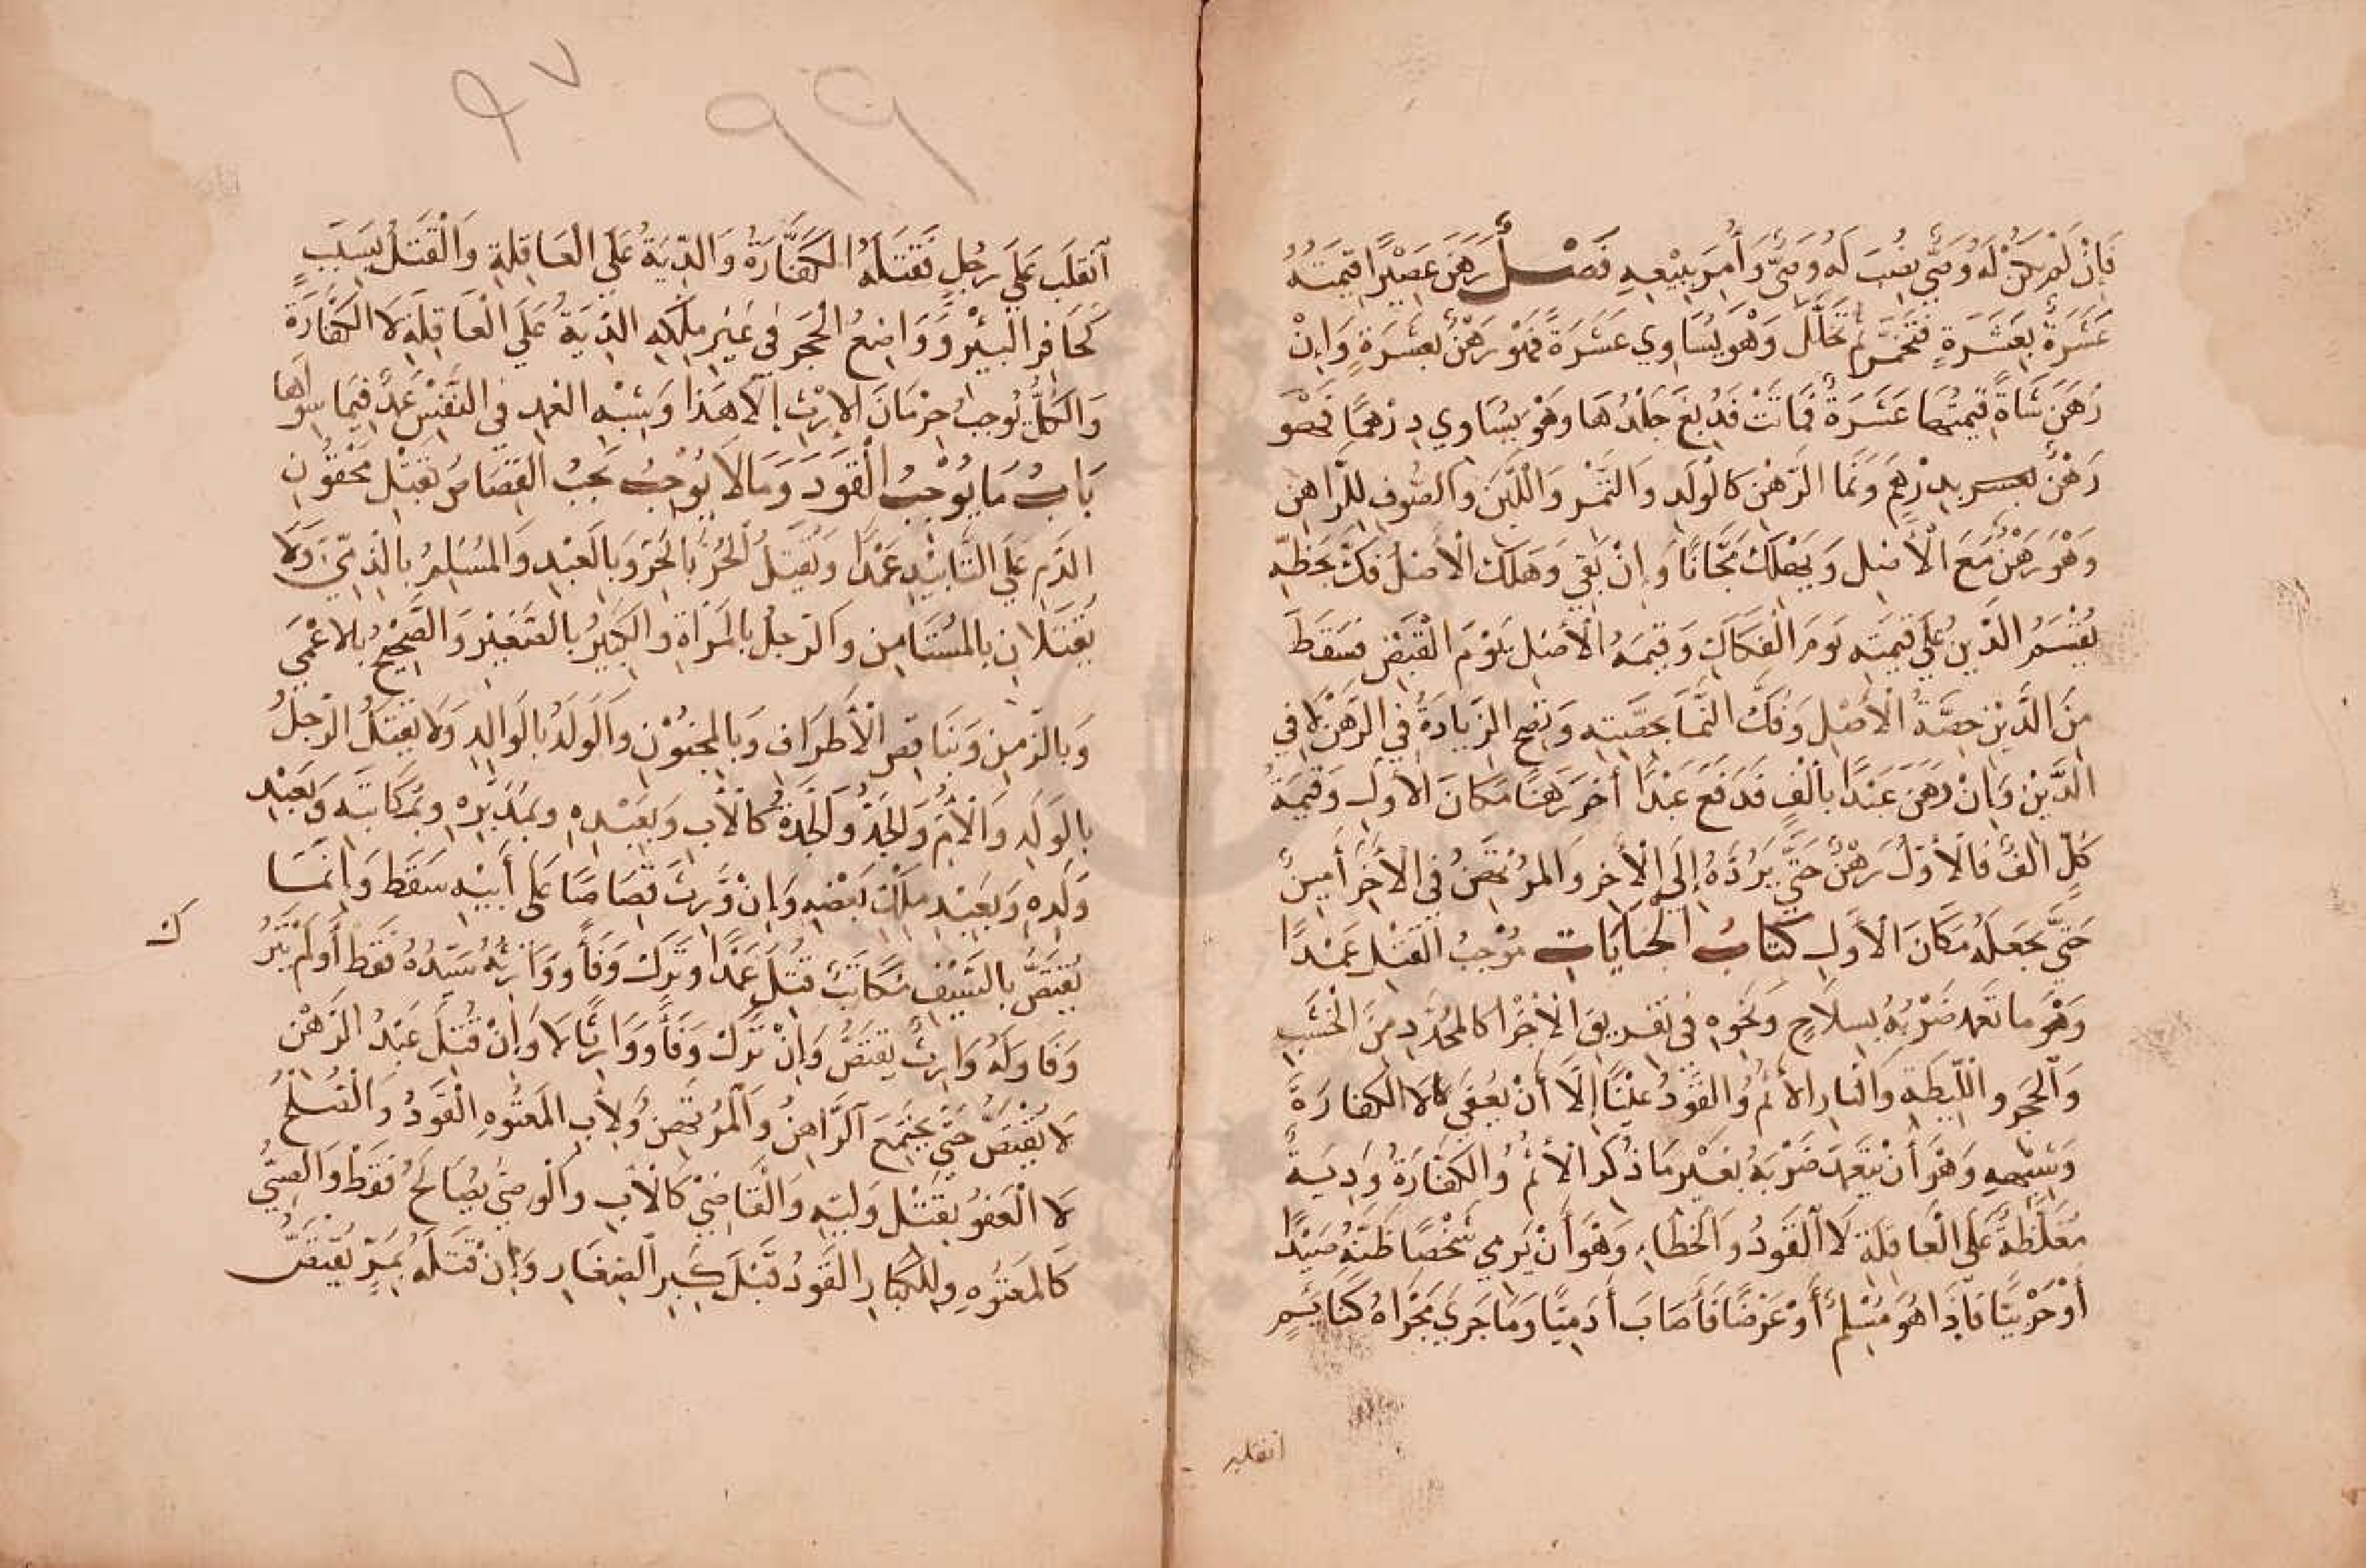 فَإِنْ لَمْ يَكُنْ لَهُ وَصِيٌّ نُصِبَ لَهُ وَصِيٌّ وَأُمِرَ بِبَيْعِهِ فَصْلٌ رَهَنَ عَصِيْرًا قِيْمَتُهُ
عَشَرَةٌ بِعَشَرَةٍ فَتَخَمَّرَ ثُمَّ تَخَلَّلَ وَهْوَ يُسَاوِي عَشَرَةً فَهْوَ رَهْنٌ بِعَشَرَةٍ وَإِنْ
رَهَنَ شَاةً قِيمَتُهَا عَشَرَةٌ فَمَاتَتْ فَدُبِغَ جِلْدُهَا وَهْوَ يُسَاوِي دِرْهَمًا فَهْوَ
رَهْنٌ بِدِرْهَمٍ وَنَمَا الرَّهْنِ كَالْوَلَدِ وَالثَّمَرِ وَاللَّبَنِ وَالصُّوفِ لِلرَّاهِنِ
وَهْوَ رَهْنٌ مَعَ الْأَصْلِ وَيَهْلِكُ مَجَّانًا وَإِنْ بَقِيَ وَهَلَكَ الْأَصْلُ فُكَّ بِحَظِّهِ
يُقْسَمُ الدَّيْنُ عَلَى قِيمَتِهِ يَوْمَ الْفِكَاكِ وَقِيمَةُ الْأَصْلِ يَوْمَ الْقَبْضِ فَسَقَطَ
مِنَ الدَّيْنِ حِصَّةُ الْأَصْلِ وَفُكَّ النَّمَا بِحِصَّتِهِ وَتَصِحُّ الزِّيَادَةُ فِي الرَّهْنِ لَا فِي
الدَّيْنِ وَإِنْ رَهَنَ عَبْدًا بِأَلْفٍ فَدَفَعَ عَبْدًا أخَرَ رَهْنًا مَكَانَ الأَوَّلِ وَقِيْمَةُ
كُلٍّ أَلْفٌ فَالْأَوَّلُ رَهْنٌ حَتَّى يَرُدَّهُ إِلَى الْأخِرِ وَالمُرْتَهِنُ فِي الْأخَرِ أَمِينٌ
حَتَّى يَجْعَلَهُ مَكَانَ الْأَوَّلِ كِتَابُ الْجِنَايَاتِ مُوْجَبُ الْقَتْلِ عَمْدًا
وَهْوَ مَا تَعَمَّدَ ضَرْبُهُ بِسِلَاحٍ وَنَحْوِهِ فِي تَفْرِيقِ الْأَجْزَا كَالْمُحَدَّدِ مِنَ الْخَشَبِ
وَالْحَجَرِ وَاللِّيطَةِ وَالنَّارِ الْأَثْمُ وَالْقَوَدُ عَيْنًا إِلَّا أَنْ يُعْفَى لَا الْكَفَارَةَ
وَشِبْهِهِ وَهْوَ أَنْ يَتَعَمَّدَ ضَرْبَهُ بِغَيْرِ مَا ذُكِرَ الْأثْمُ وَالْكَفَّارَةُ وَدِيَةٌ
مُغَلَّظَةٌ عَلَى الْعَاقِلَةِ لَا الْقَوَدُ وَالْخَطَاءِ وَهْوَ أَنْ يَرْمِي شَخْصًا ظَنَّهُ صَيْدًا
أَوْ حَرْبِيًّا فَإِذَا هُوَ مُسْلِمٌ أَوْ غَرَضًا فَأَصَابَ أَدَمِيًّا وَمَا جَرَي مَجْرَاهُ كَنَايِمٍ
انقلب
٩٧
٩٩
اَنْقَلَبَ عَلَى رَجُلٍ فَقَتَلَهُ الْكَفَّارَةُ وَالدِّيَةُ عَلَى الْعَاقِلَةِ وَالْقَتْلُ بِسَبَبٍ
كَحَافِرِ الْبِئْرِ وَوَاضِعُ الْحَجَرِ فِي غَيْرِ مِلْكِهِ الدِّيَةُ عَلَى الْعَاقِلَةِ لَا الْكَفَّارَةَ
وَالْكُلُّ يُوجِبُ حِرْمَانَ الْإِرْثِ إِلَّا هَذَا وَشِبْهِ الْعَمْدِ فِي النَّفْسِ عَمْدٌ فِيمَا سِوَاهَا
بَابُ مَا يُوْجِبُ الْقَوَدَ وَمَا لَا يُوْجِبُ يَجِبُ الْقِصَاصُ بِقَتْلِ مَحْقُونِ
الدَّمِ عَلَى التَّأبِيْدِ عَمْدًا وَيُقْتَلُ الْحُرُّ بِالْحُرِّ وَبِالْعَبْدِ وَالْمُسْلِمُ بِالذِّمِّيِّ وَلَا
يُقْتَلَانِ بِالْمُسْتَامِنِ وَالرَّجُلُ بِالْمَرْأَةِ وَالْكَبِيْرُ بِالصَّغِيْرِ وَالصَّحِيْحُ بِالاعْمَي
وَبِالزَّمِنِ وَبِنَاقِصِ الْأَطْرَافِ وَبِالْمَجْنُوْنِ وَالْوَلَدُ بِالْوَالِدِ وَلَا يُقْتَلُ الرَّجُلُ
بِالْوَلَدِ وَالْأُمُّ وَالْجَدُّ وَالْجَدَّةُ كَالْأَبِ وَبِعَبْدِهِ وَبِمُدَبَّرِهِ وَبِمُكَاتَبِهِ وَبِعَبْدِ
وَلَدِهِ وَبِعَبْدِ مَلَكَ بَعْضَهُ وَإِنْ وَّرِثَ قِصَاصًا عَلَى أَبِيْهِ سَقَطَ وَإِنَّمَا
يُقْتَصُّ بِالسَّيْفِ مُكَاتَبٌ قُتِلَ عَمْدًا وتَرَكَ وَفَأً وَوَارِثُهُ سَيِّدُهُ فَقَطْ أَوْ لَمْ يَتْرُ
ك
وَفَا وَلَهُ وَارِثٌ يُقْتَصُّ وَإِنْ تَرَكَ وَفَأً وَوَارِثًا لَا وَإِنْ قُتِلَ عَبْدُ الرَّهْنِ
لَا يُقْتَصُّ حَتَّى يَجْتَمِعَ الرَّاهِنُ وَالْمُرْتَهِنُ وَلِأَبِ الْمَعْتُوهِ الْقَوَدُ وَالصُّلْحُ
لَا الْعَفْوُ بِقَتْلِ وَلِيِّهِ وَالْقَاضِيْ كَالْأَبِ وَالْوَصِيُّ يُصَالَحُ فَقَطْ وَالصَّبِيُّ
كَالْمَعْتُوهِ وَلِلْكِبَارِ الْقَوَدُ قَبْلَ كِبَرِ الصِّغَارِ وَإِنْ قَتَلَهُ بِمَرٍّ يُقْتَصُّ